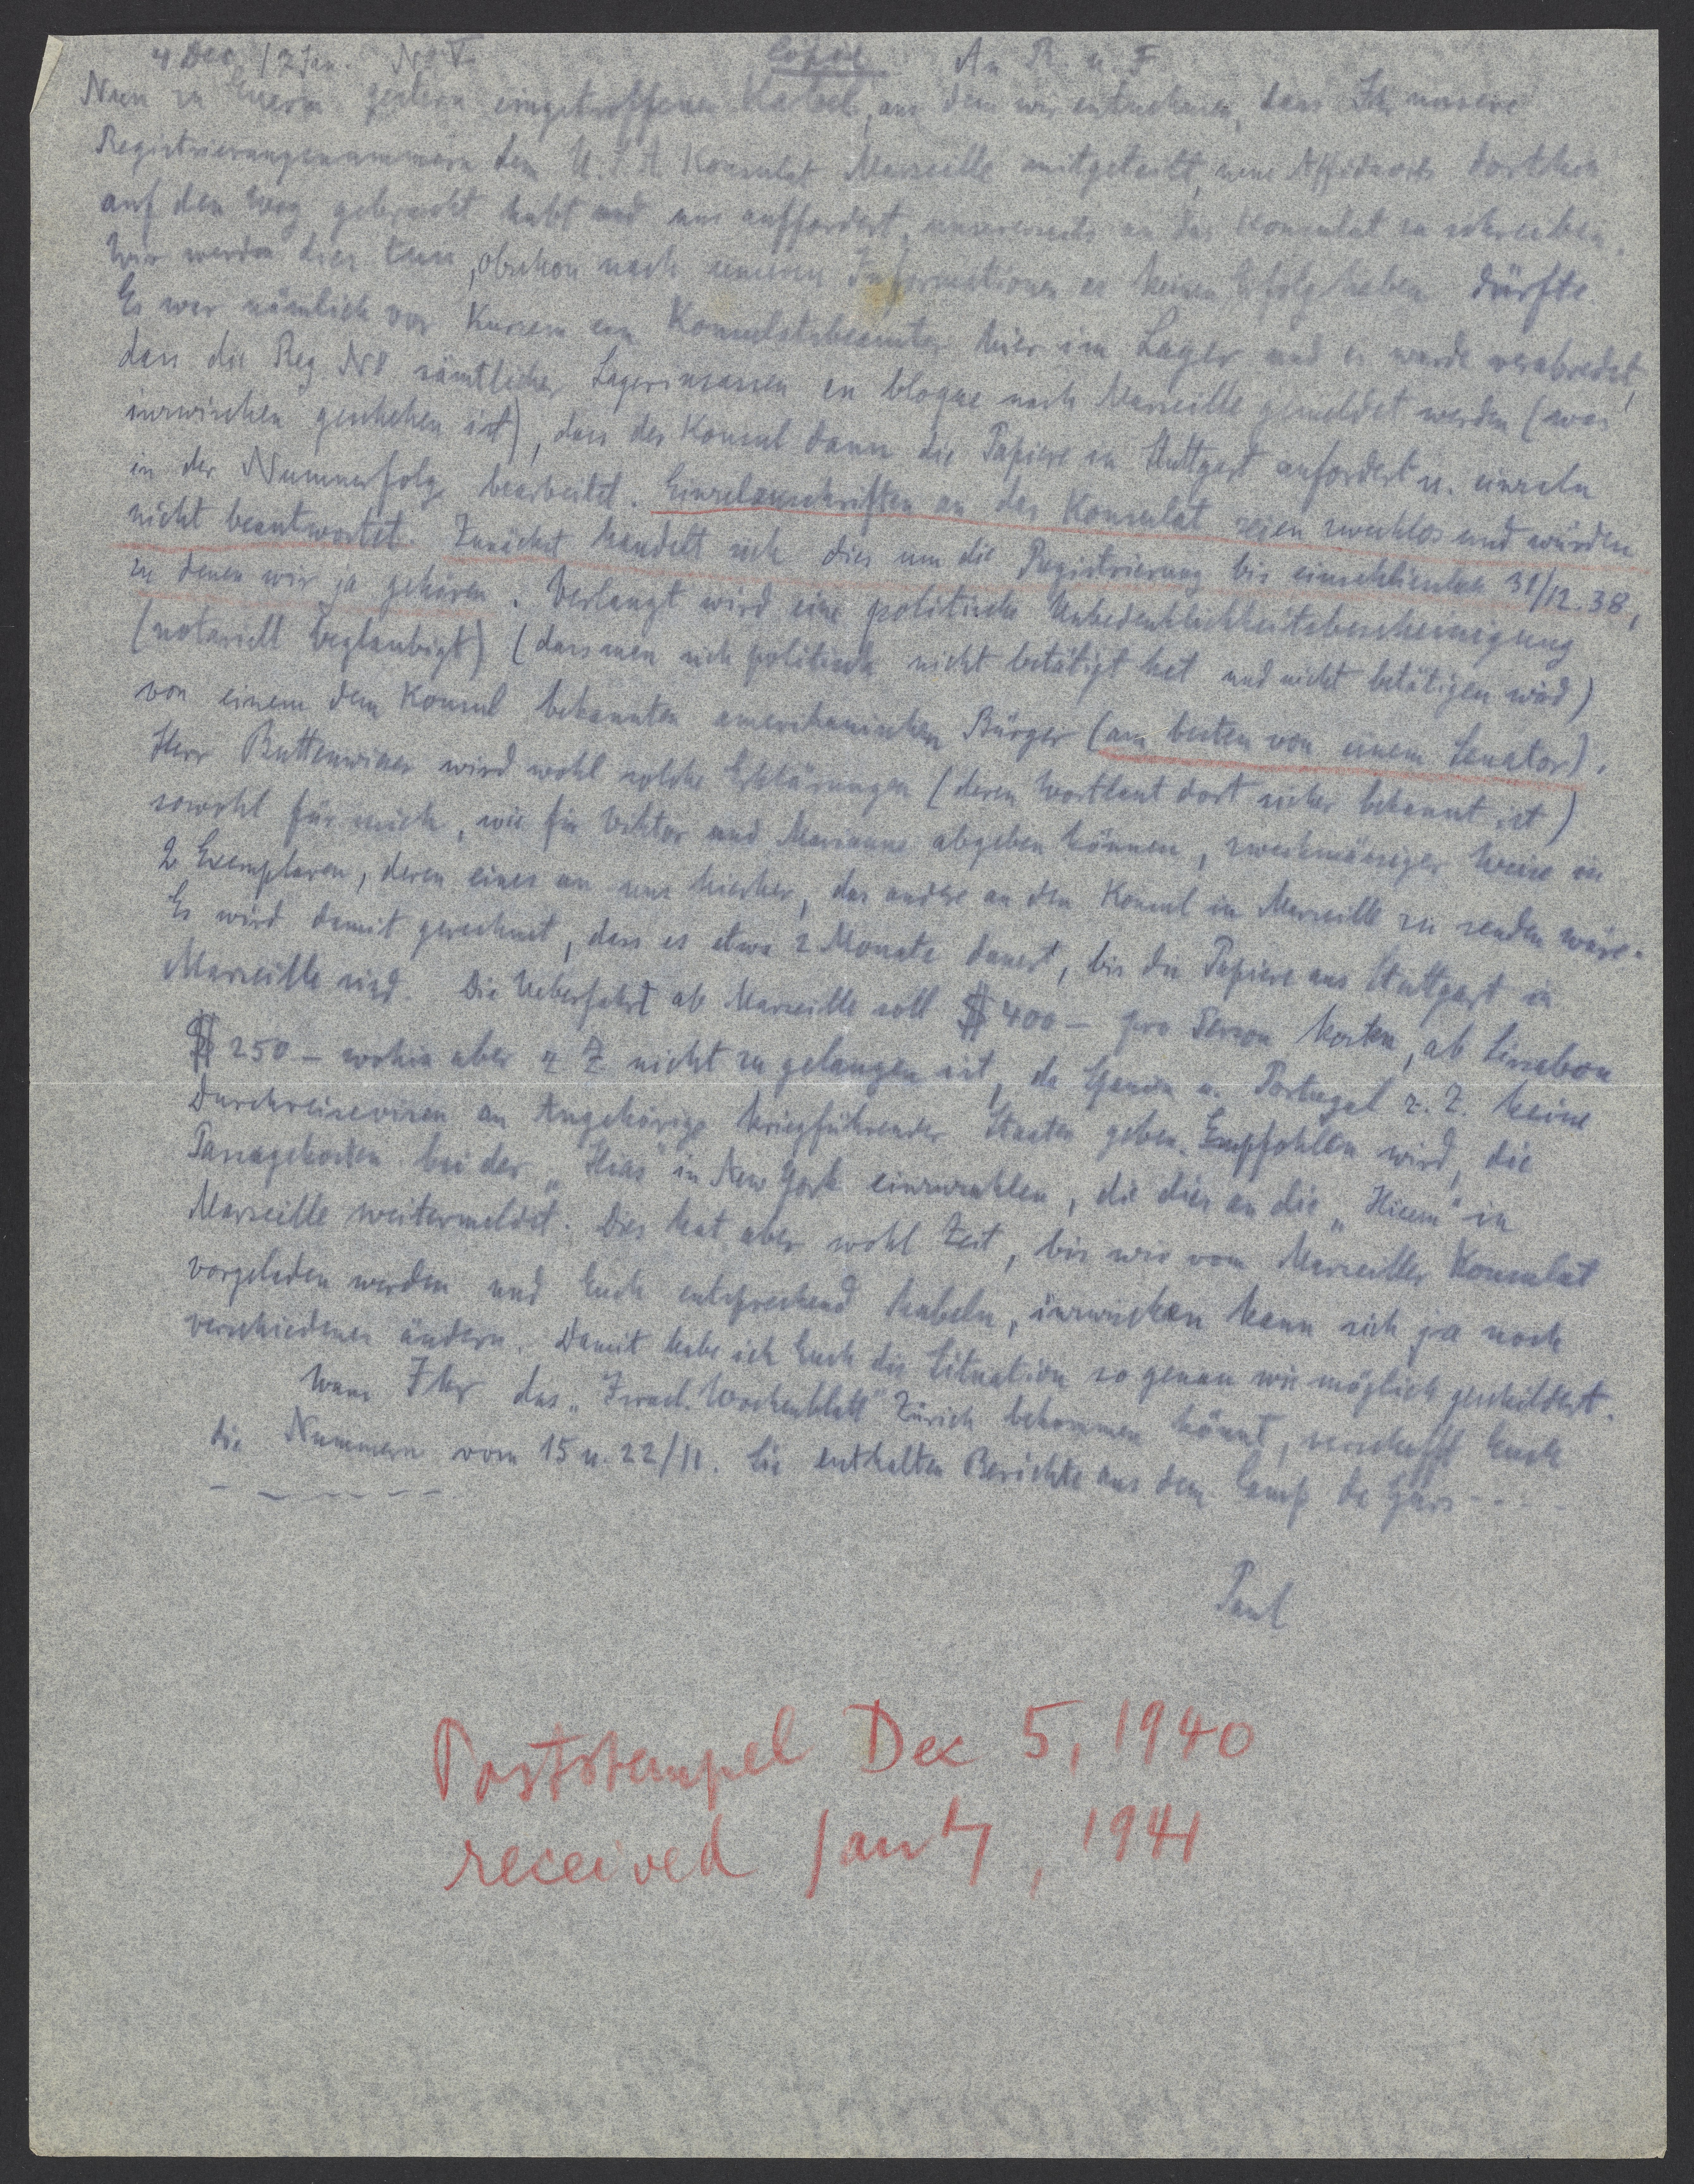 4 Dec. / 2 Jan. No V. Copie An R. u. F.
Nun zu Euerm gestern eingetroffenen Kabel, aus dem wir entnehmen, dass Ihr unsere
Registrierungsnummern dem U.S.A. Konsulat Marseille mitgeteilt, neue Affidavits dorthin
auf den Weg gebracht habt und uns auffordert, unsererseits an das Konsulat zu schreiben.
Wir werden dies tun, obschon nach unseren Informationen es keinen Erfolg haben dürfte.
Es war nämlich vor Kurzem ein Konsulatsbeamter hier im Lager und es wurde verabredet,
dass die Reg. No sämtlicher Lagerinsassen en bloque nach Marseille gemeldet werden (was
inzwischen geschehen ist), dass der Konsul dann die Papiere in Stuttgart anfordert u. einzeln
in der Nummerfolge bearbeitet. Einzelzuschriften an das Konsulat seien zwecklos und würden
nicht beantwortet. Zunächst handelt sich dies um die Registrierung bis einschliesslich 31/12.38,
zu denen wir ja gehören. Verlangt wird eine politische Unbedenklichkeitsbescheinigung
(notariell beglaubigt) (dass man sich politisch nicht betätigt hat und nicht betätigen wird)
von einem dem Konsul bekannten amerikanischen Bürger (am besten von einem Senator).
Herr Buttenwieser wird wohl solche Erklärungen (deren Wortlaut dort sicher bekannt ist)
sowohl für mich, wie für Viktor und Marianne abgeben können, zweckmässiger Weise in
2 Exemplaren, deren eines an uns hierher, das andere an den Konsul in Marseille zu senden wäre.
Es wird damit gerechnet, dass es etwa 2 Monate dauert, bis die Papiere aus Stuttgart in
Marseille sind. Die Ueberfahrt ab Marseille soll $ 400 – pro Person kosten, ab Lissabon
$ 250 – wohin aber z Z nicht zu gelangen ist, da Spanien u. Portugal z. Z. keine
Durchreisevisen an Angehörige kriegführender Staaten geben. Empfohlen wird, die
Passagekosten bei der „Hias" in New York einzuzahlen, die dies an die „Hicem" in
Marseille weitermeldet. Dies hat aber wohl Zeit, bis wir vom Marseiller Konsulat
vorgeladen werden und Euch entsprechend kabeln, inzwischen kann sich ja noch
verschiedenes ändern. Damit habe ich Euch die Situation so genau wie möglich geschildert.
Wenn Ihr das „Israel. Wochenblatt" Zürich bekommen könnt, verschafft Euch
die Nummern vom 15 u. 22/11. Sie enthalten Berichte aus dem Camp de Gurs - - - -
Paul
Poststempel Dec 5, 1940
received Jan, 1941